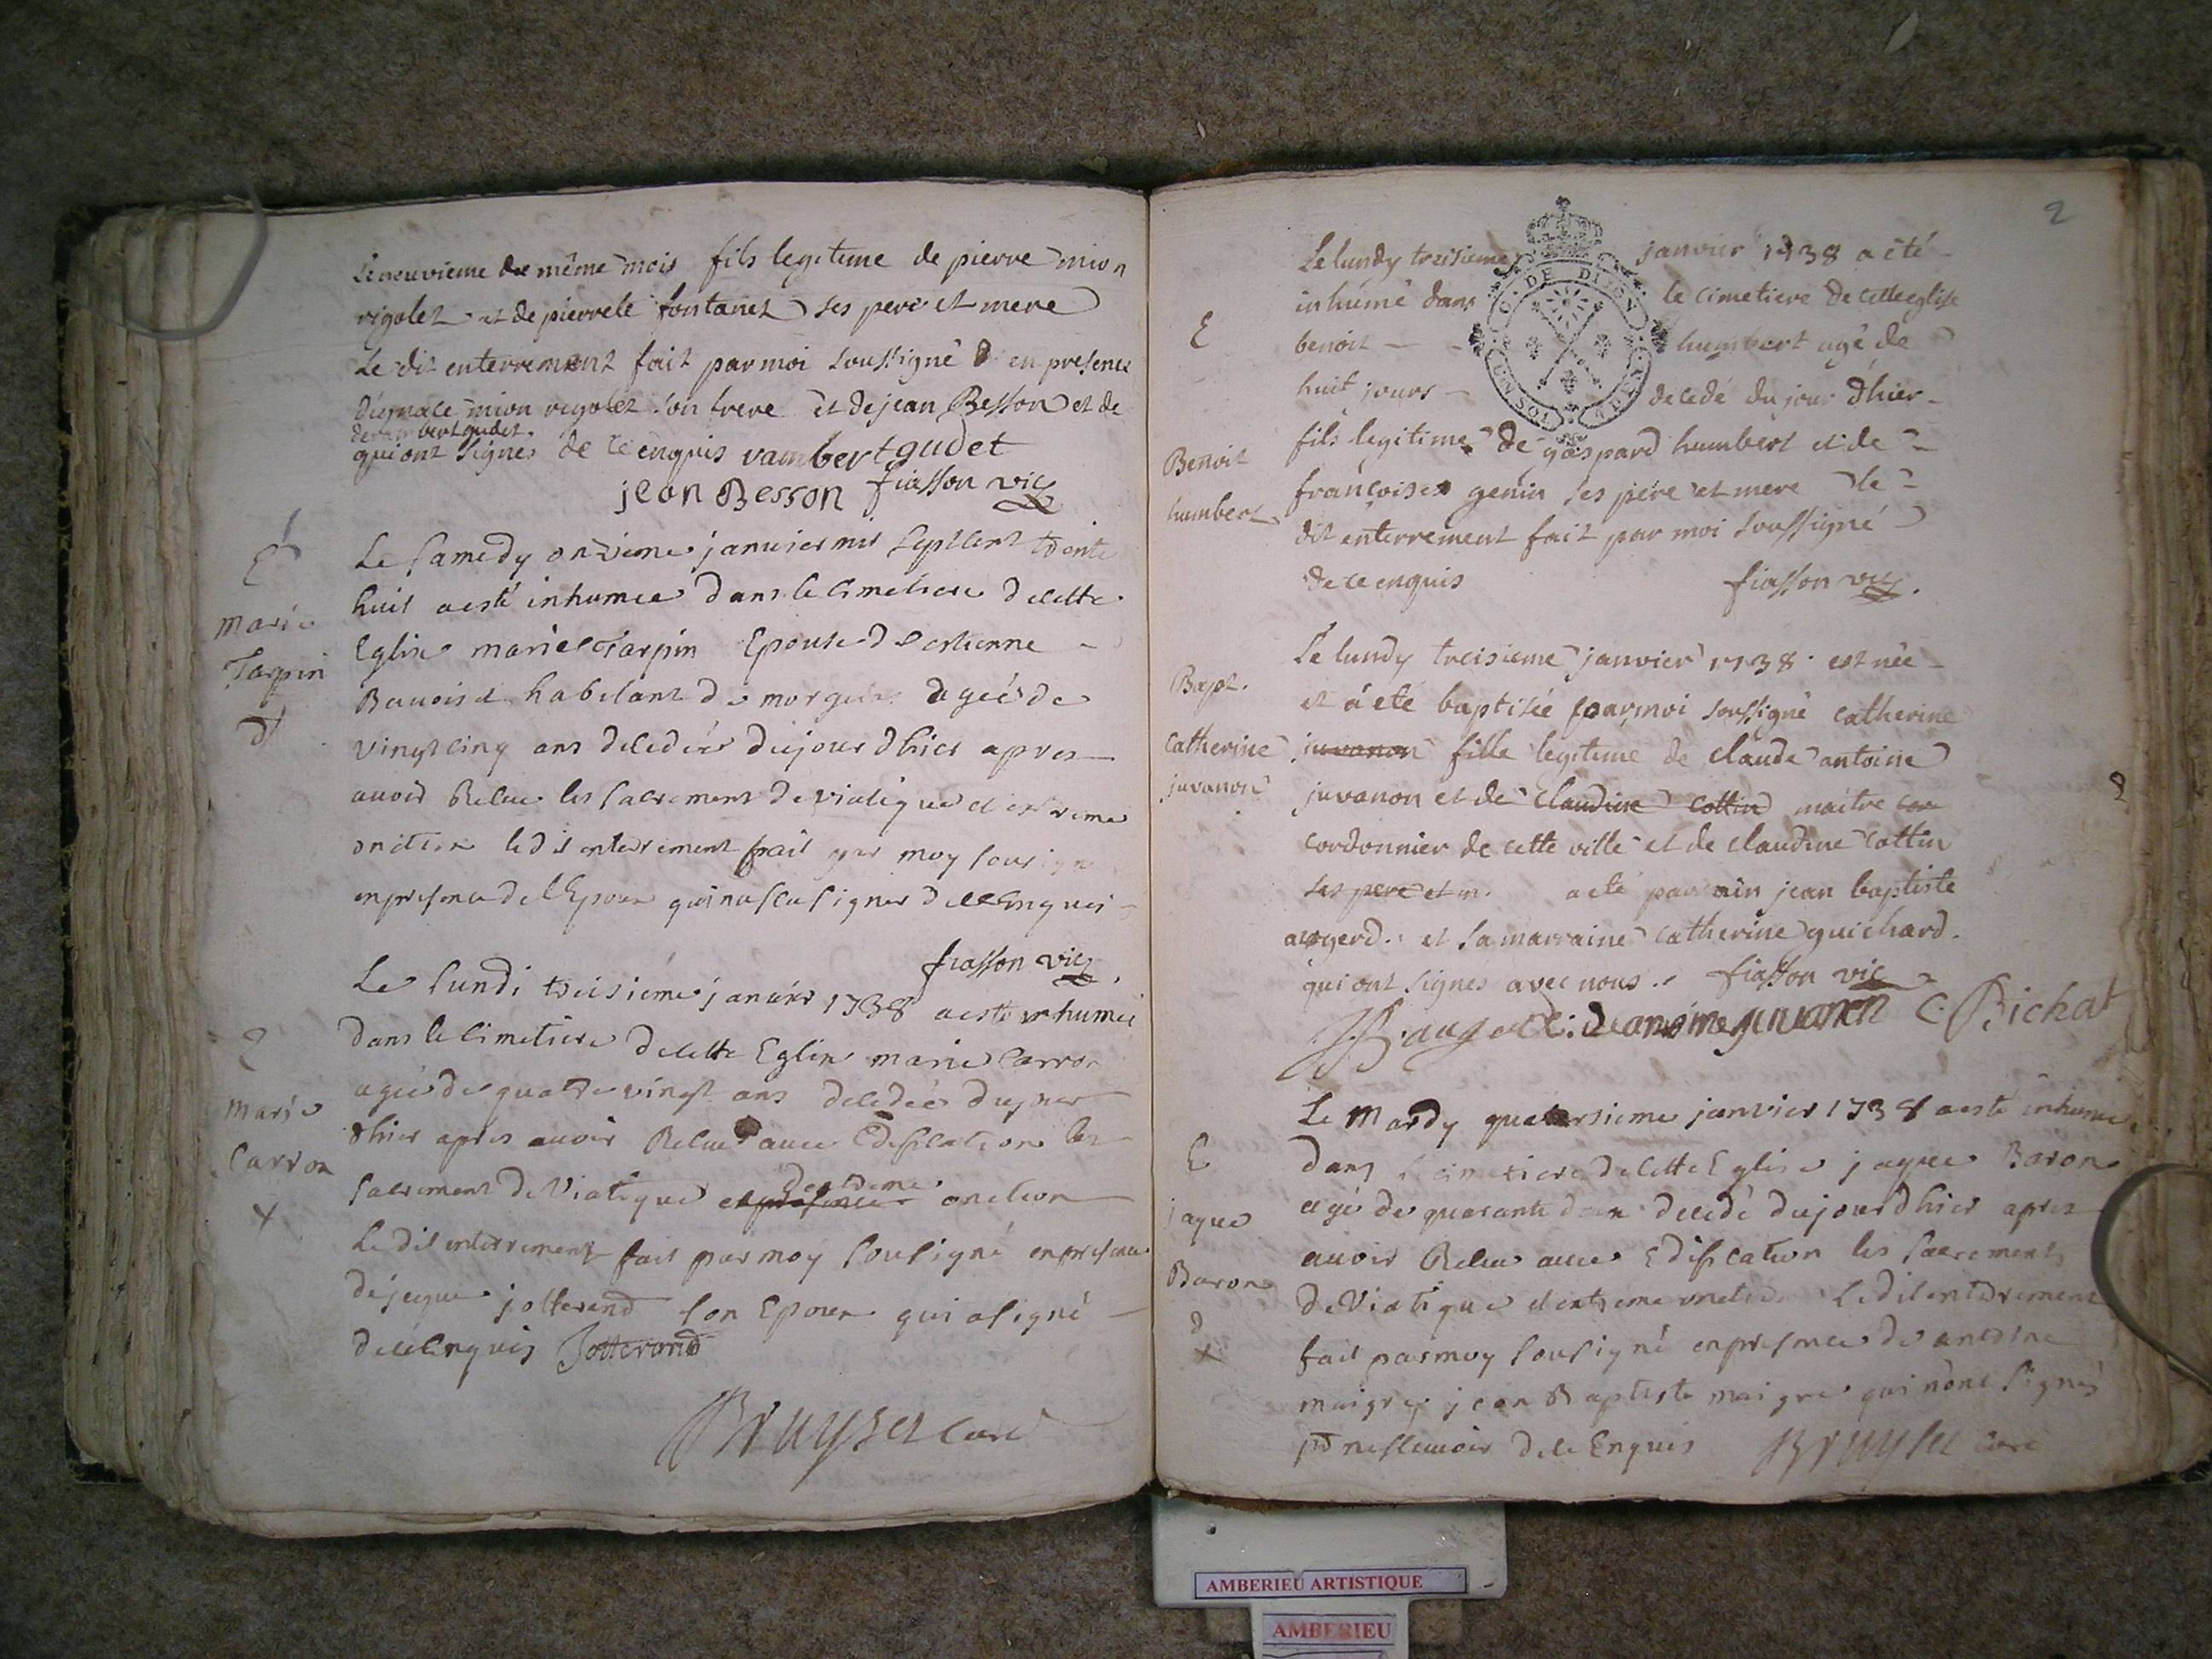 le neuvieme du même mois fils legitime de pierre mion
rigolet et de pierrete fontanet ses pere et mere
Le dit enterrement fait par moi soussigné en presence
mion rigolet son frere et de jean Besson et de
de rambert gudet
qui ont signés de ce enquis rambert gudet
jean Besson fiasson vic
E
Marie
Tarpin
d
Le Samedy onzieme janvier mil sept cent trente
huit a esté inhumee dans le cimetiere de cette
Eglise marie Tarpin Epouse d estienne
habitant de agée de
vingt cinq ans decedée du jour dhier apres
avoir Receu les sacrement de viatique et extreme
onction le dit enterrement fait par moy sousigné
en presence de l'Epoux qui na sceu signer de ce enquis
fiasson vic
Marie
Carron
x
Le Lundi treisiéme janvier 1738 a esté inhumée
dans le cimetiere de cette Eglise marie Carron
agée de quatre vingt ans decedée du jour
dhier apres avoir Receu avec Edification les
sacrement de Viatique dextreme onction
Le dit enterrement fait par moy sousigné en presence
de jaque jotterand son Epoux qui a signé
de ce enquis Jotterand
Bruyset curé
2
E
Benoit
humbert
Le lundy treisieme janvier 1738 a été
inhumé dans le cimetiere de cette eglise
benoit humbert agé de
huit jours decedé du jour d'hier
fils legitime de gaspard humbert et de
françoise genin ses pére et mere le
dit enterrement fait par moi soussigné
de ce enquis fiasson vic.
O. DE DIJON
UN SOL
Bapt.
catherine
juvanon
Le lundy treisieme janvier 1738 est née
et a été baptisée par moi soussigné catherine
juvanon fille legitime de claude antoine
juvanon et de claudine cottin maitre
cordonnier de cette ville et de claudine cottin
ses pere et m. a eté parrain jean baptiste
augerd. et sa marraine catherine guichard.
qui ont signés avec nous. fiasson vic
juvanon C. Bichat
E
jaque
Baron
d
x
Le Mardy quatorsieme janvier 1738 a esté inhumé
dans le cimetiere de cette Eglise jaque Baron
agé de quarante decedé du jour dhier apres
avoir Receu avec Edification les sacrements
de Viatique et extreme onction Le dit enterrement
fait par moy sousigné en presence de antoine
maigre jean Baptiste maigre qui n'ont signés
pr ne scavoir de ce Enquis Bruyset curé
AMBERIEU ARTISTIQUE
AMBERIEU